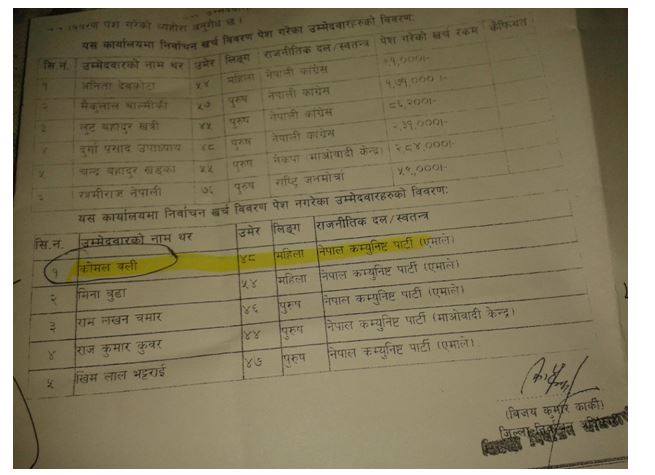 विवरण पेश गरेको व्यहोरा अनुरोध छ।
यस कार्यालयमा निर्वाचन खर्च विवरण पेश गरेका उम्मेदवारहरुको विवरण:
सि.नं. उम्मेदवारको नाम थर उमेर लिङ्ग राजनीतिक दल/स्वतन्त्र पेश गरेको खर्च रकम कैफियत
१ अनिता देवकोटा ५४ महिला नेपाली कांग्रेस
२ मैकुलाल बाल्मीकी ५७ पुरुष नेपाली कांग्रेस
३ लुट बहादुर खत्री ४५ पुरुष नेपाली कांग्रेस
४ दुर्गा प्रसाद उपाध्याय ४८ पुरुष नेपाली कांग्रेस
५ चन्द्र बहादुर खड्का ५५ पुरुष नेकपा (माओवादी केन्द्र)
नेपाली ७६ पुरुष जनमोर्चा
यस कार्यालयमा निर्वाचन खर्च विवरण पेश नगरेका उम्मेदवारहरुको विवरण:
सि.नं. उम्मेदवारको नाम थर उमेर लिङ्ग राजनीतिक दल/स्वतन्त्र
१ कोमल वली ४८ महिला नेपाल कम्युनिष्ट पार्टी (एमाले)
२ मिना बुढा ५४ महिला नेपाल कम्युनिष्ट पार्टी (एमाले)
३ राम लखन चमार ४६ पुरुष नेपाल कम्युनिष्ट पार्टी (एमाले)
४ राज कुमार कुवर ४४ पुरुष नेपाल कम्युनिष्ट पार्टी (माओवादी केन्द्र)
५ खिम लाल भट्टराई ४७ पुरुष नेपाल कम्युनिष्ट पार्टी (एमाले)
(विजय कुमार कार्की)
जिल्ला निर्वाचन अधिकारी